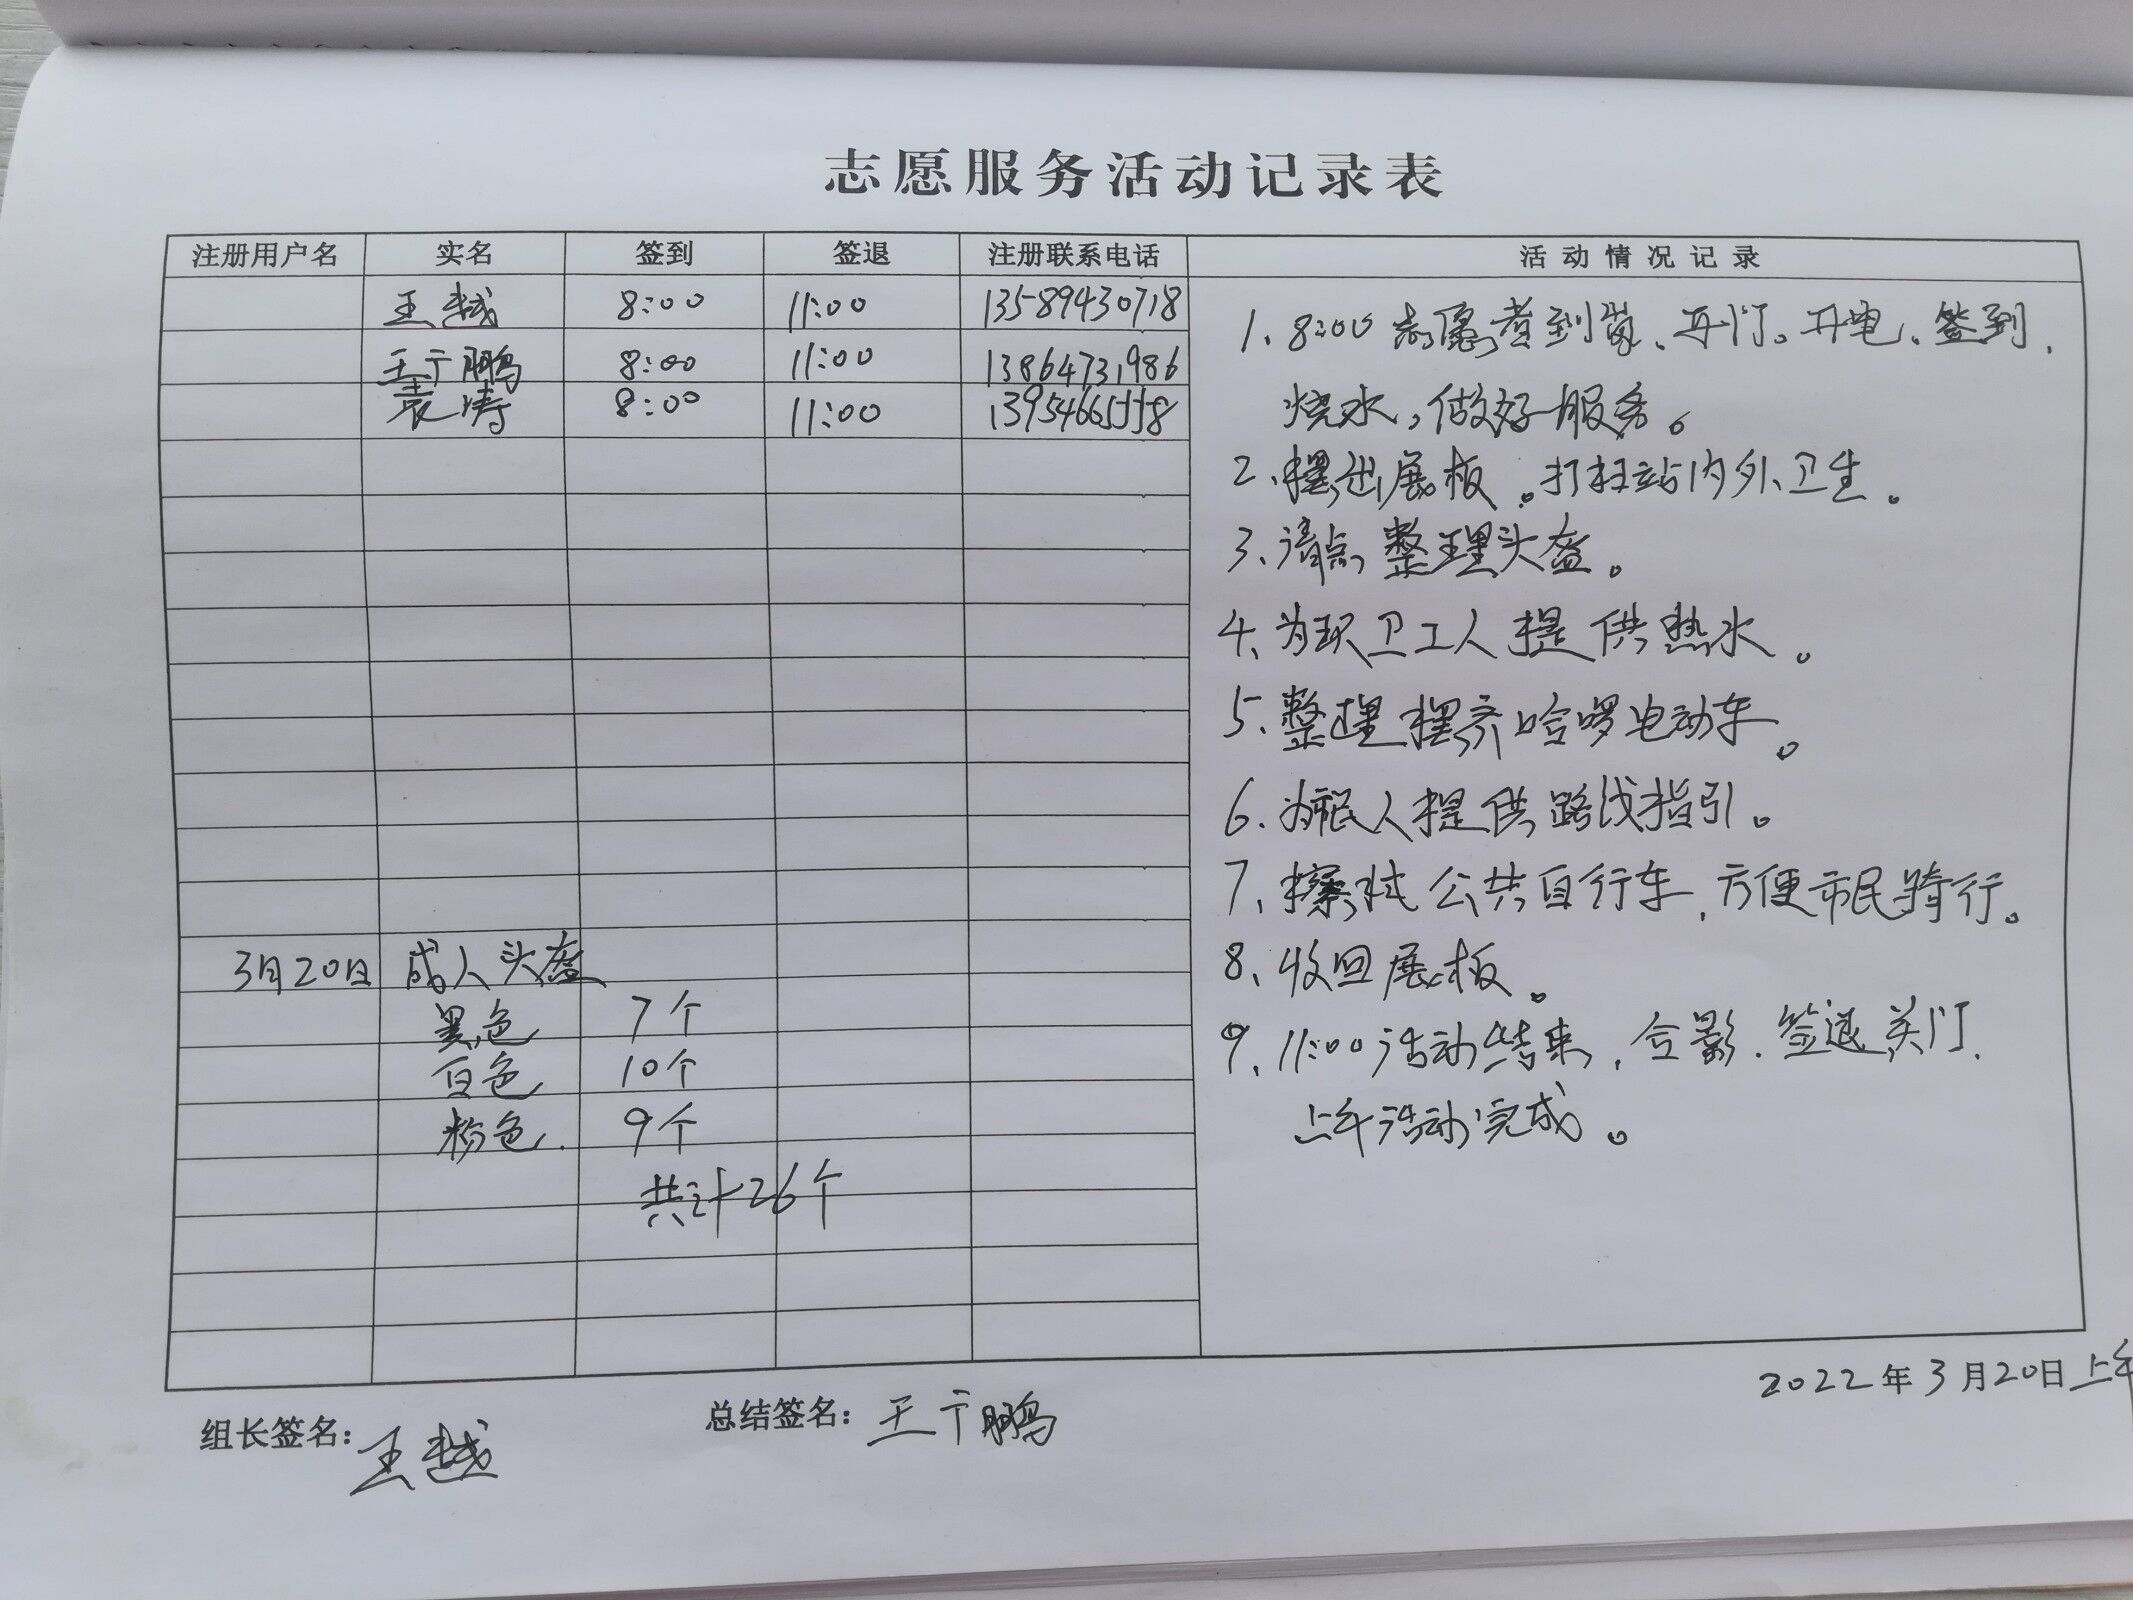 志愿服务活动记录表
注册用户名 实名 签到 签退 注册联系电话 活动情况记录
王越 8:00 11:00 13589430718
王亍鹏 8:00 11:00 13864731986
袁涛 8:00 11:00 13954665558
1、8:00志愿者到岗、开门、开电、签到、
烧水,做好服务。
2、摆出展板。打扫站内外卫生。
3、清点整理头盔。
4、为环卫工人提供热水。
5、整理摆齐哈啰电动车。
6、为市民人提供路线指引。
7、擦拭公共自行车,方便市民骑行。
8、收回展板。
9、11:00活动结束,合影、签退关门、
上午活动完成。
3月20日 成人头盔
黑色 7个
白色 10个
粉色 9个
共计26个
2022年3月20日上午
组长签名:王越
总结签名:王亍鹏